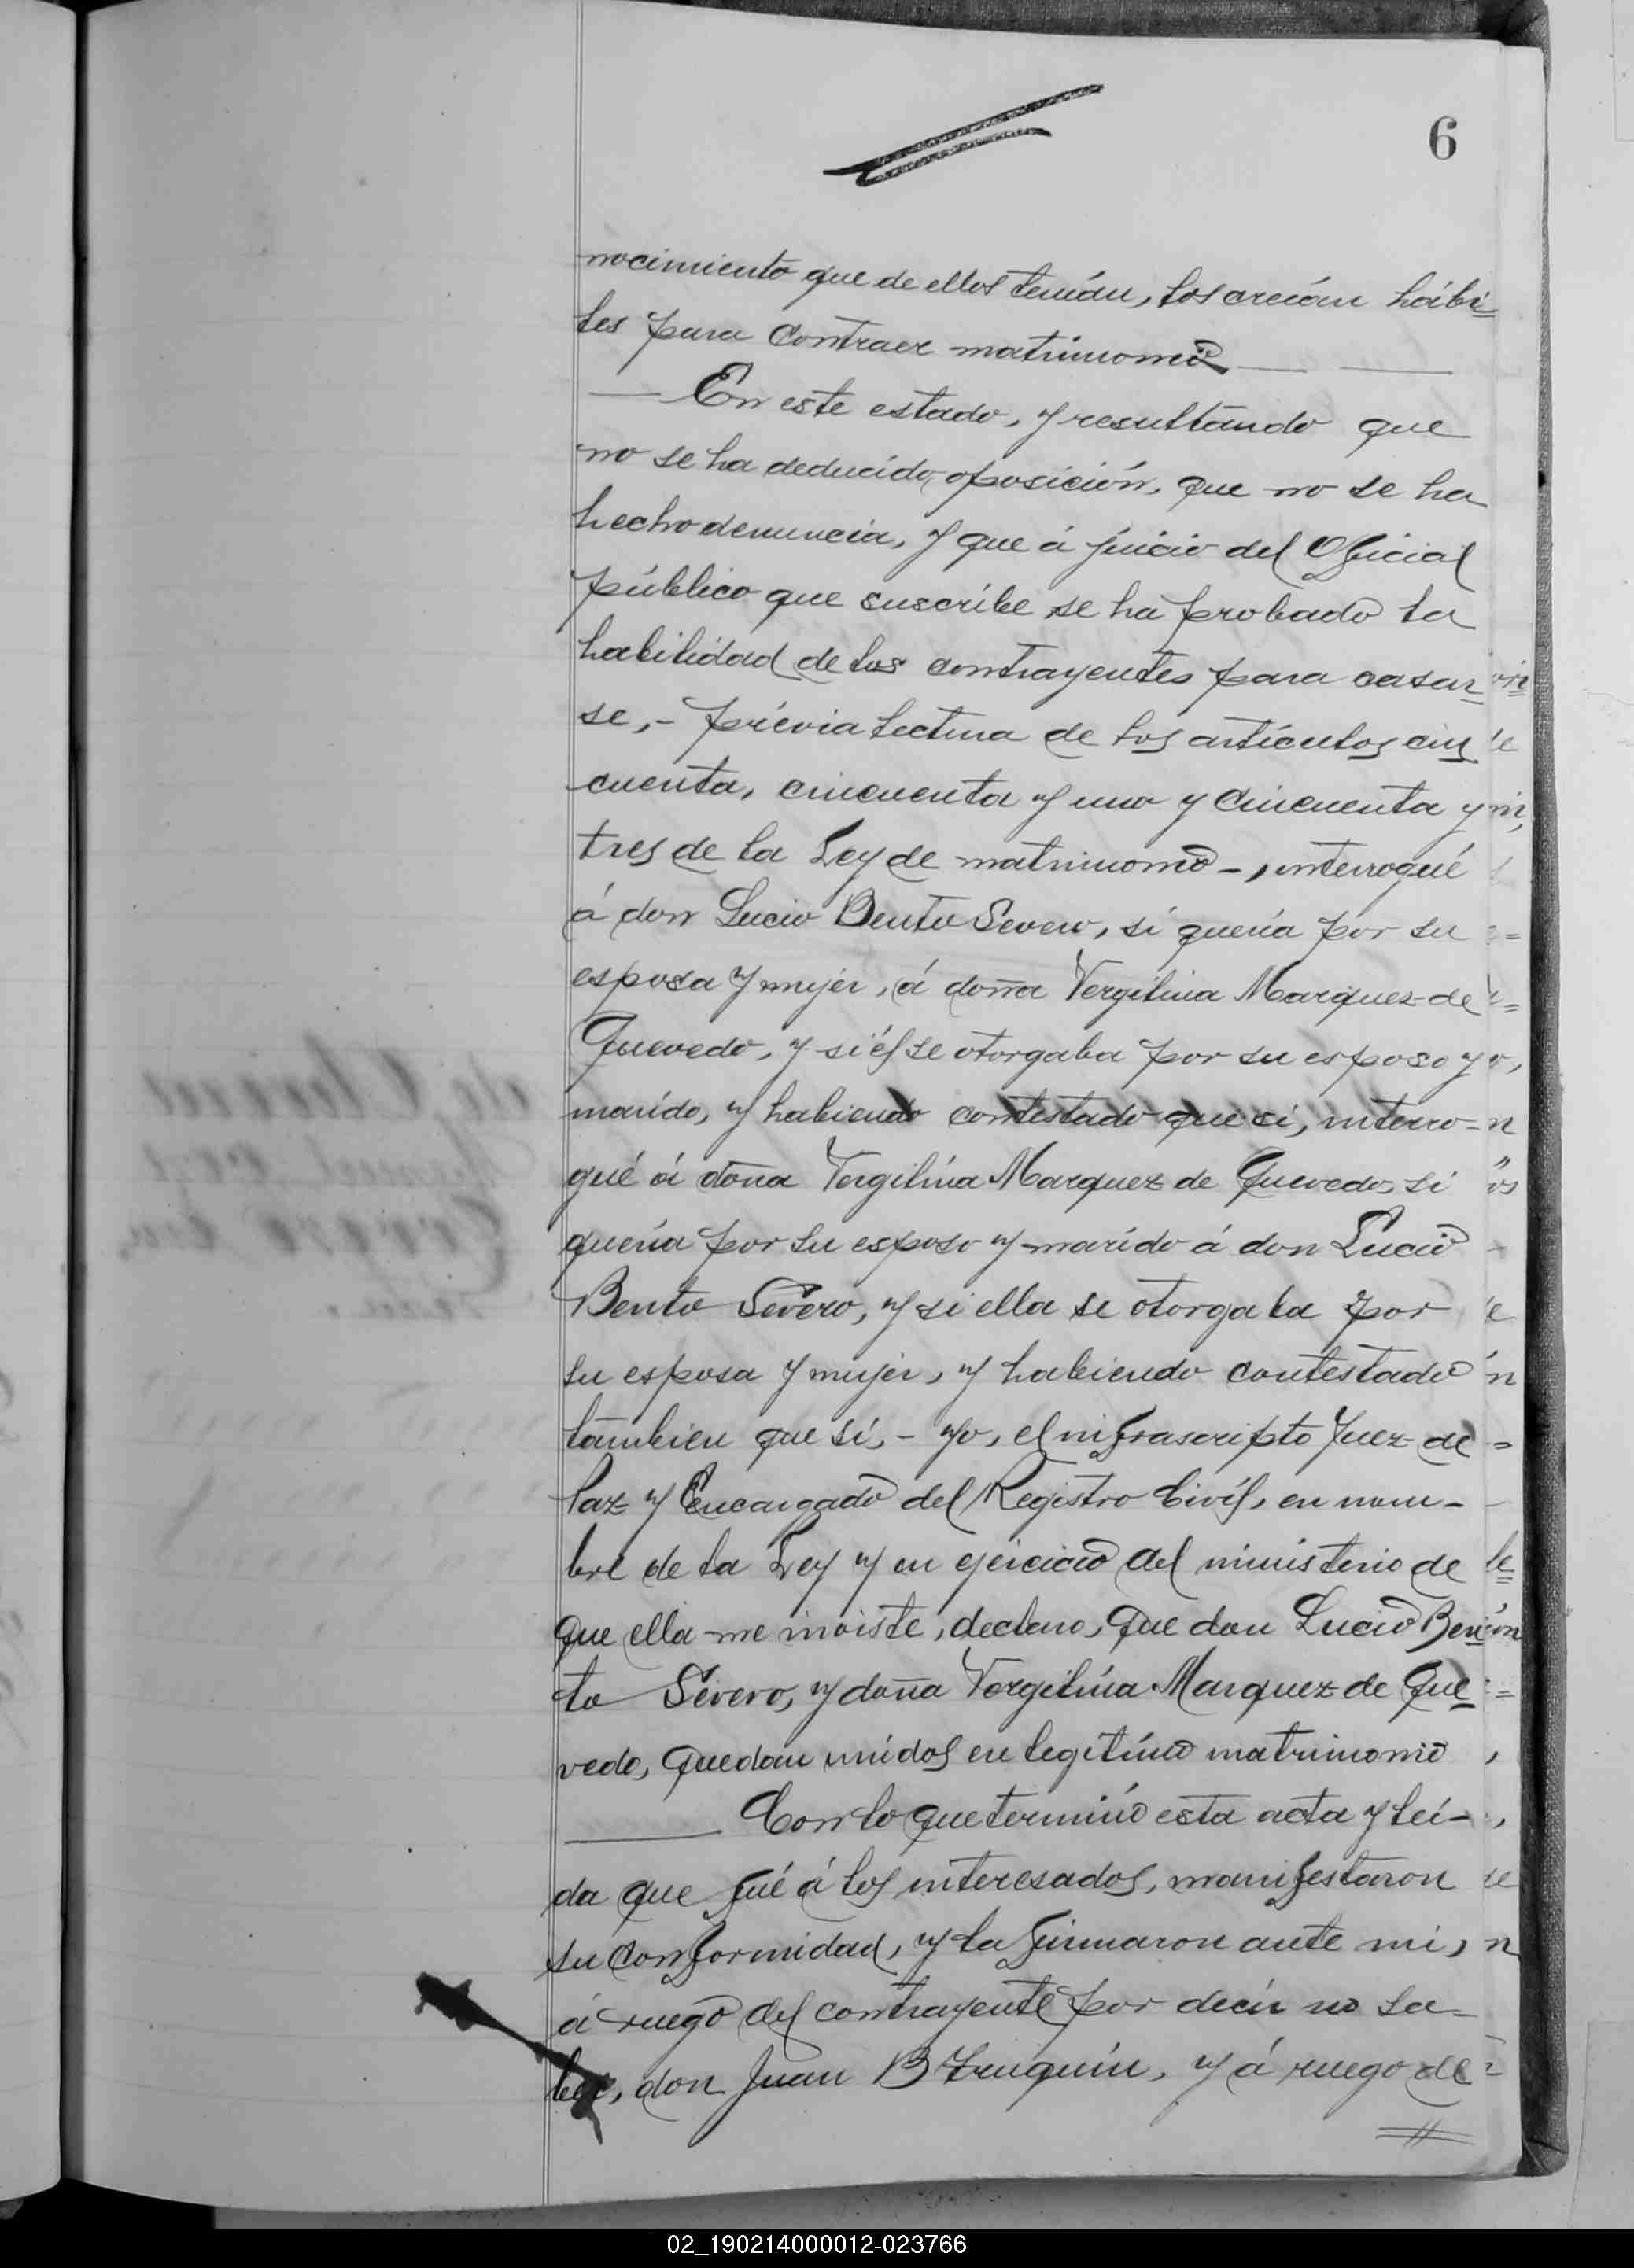 6
nocimiento que de ellos tenían, los creían hábi=
les para contraer matrimonio
En este estado, y resultando que
no se ha deducido oposición, que no se ha
hecho denuncia, y que á juicio del Oficial
público que suscribe se ha probado la
habilidad de los contrayentes para casar=
se,- prévia lectura de los artículos cin=
cuenta, cincuenta y uno y cincuenta y
tres de la Ley de matrimonio-, interrogué
á don Lucio Bento Severo, si quería por su
esposa y mujer, á doña Vergilina Marquez de
Quevedo, y si él se otorgaba por su esposo y
marido, y habiendo contestado que si, interro-
gué á doña Vergilína Marquez de Quevedo, si
quería por su esposo y marido á don Lucio
Bento Severo, y si ella se otorgaba por
su esposa y mujer, y habiendo contestado
tambien que si,- yo, el infrascripto Juez de
Paz y Encargado del Registro Civíl, en nom-
bre de la Ley y en ejercicio del ministerio de
que ella me inviste, declaro, que don Lucio Ben=
to Severo, y doña Vergilína Marquez de Que=
vedo, quedan unidos en legítimo matrimonio
Con lo que terminó esta acta y leí-
da que fué á los interesados, manifestaron
su conformidad, y la firmaron ante mi,
á ruego del contrayente por decir no sa-
ber, don Juan B, y á ruego de
02_190214000012-023766